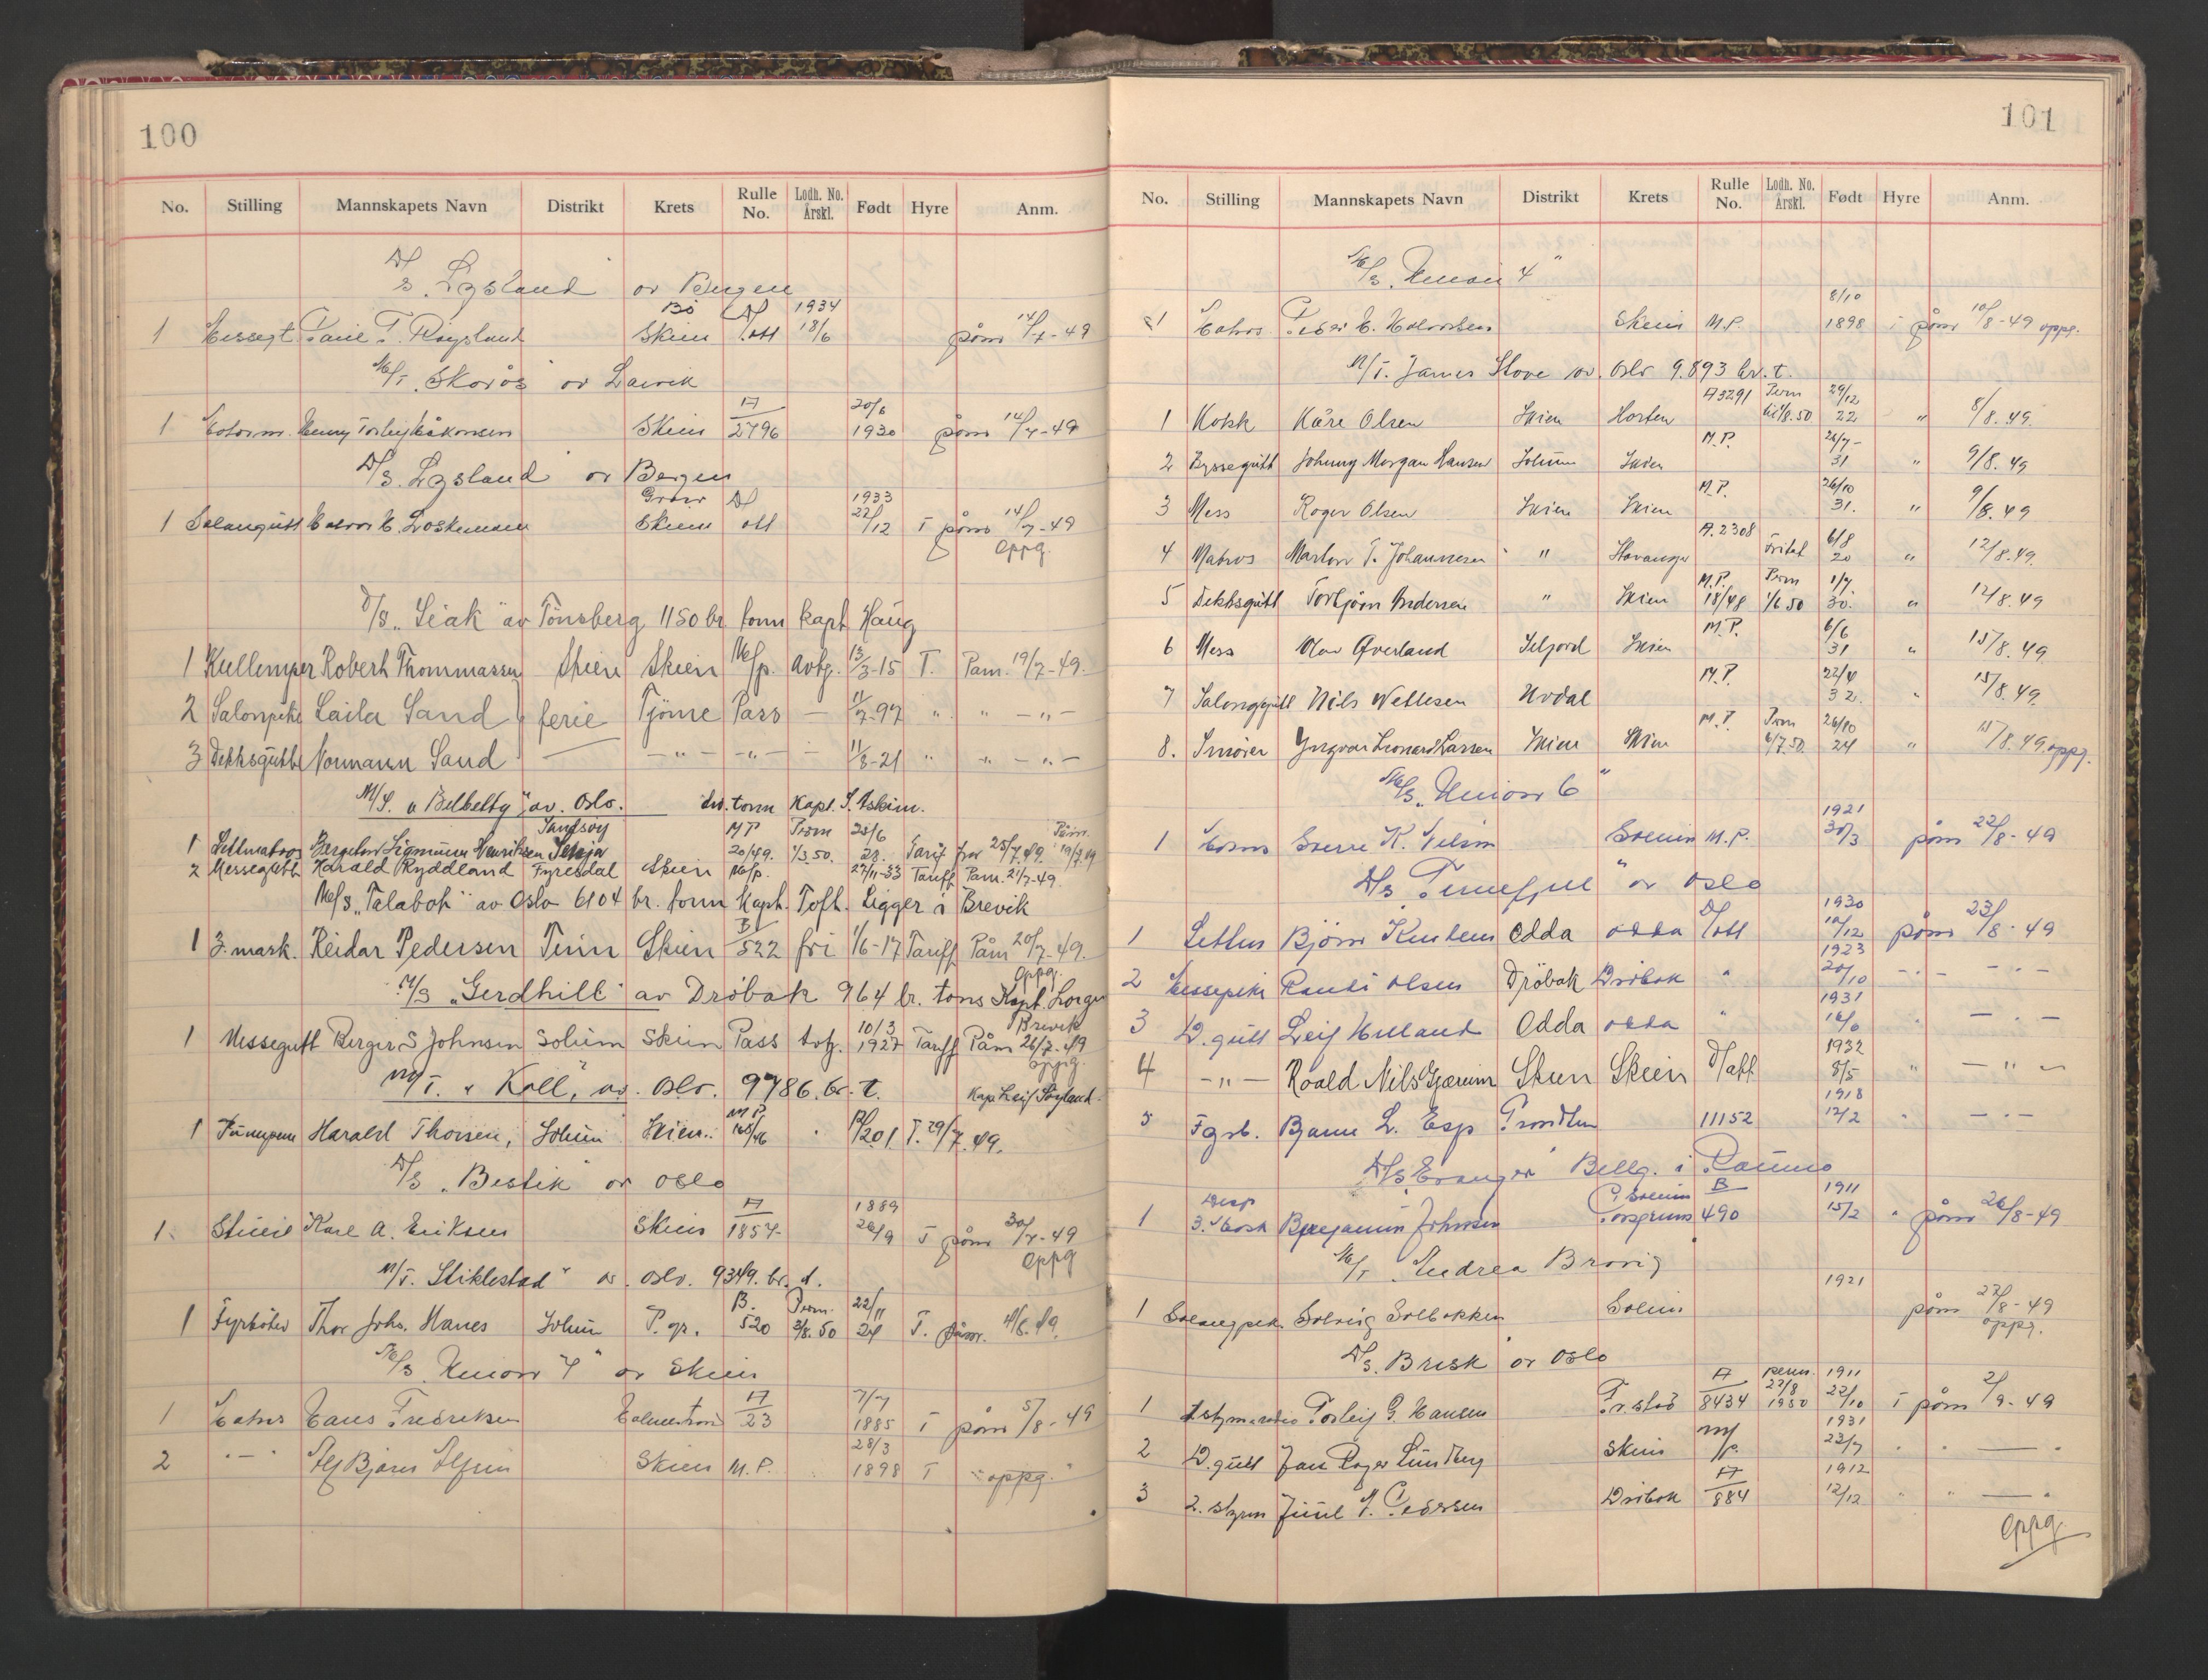 100
No. Stilling Mannskapets Navn Distrikt Krets Rulle No. Lodh. No. Årskl. Født Hyre Anm.
D/S. "Lysland" av Bergen
Bö 1934
1 Messegt F. Röysland Skien att 18/6 påm 14/7-49
M/T. "Skorås" av Larvik
A 20/6
1 Henny Torleif Håkonsen Skien 2796 1930 påm 14/7-49
D/S. Lysland av Bergen
1933
1 Salongutt Halvor H. Skien att 22/12 T påm 14/7-49
oppg.
D/S. "Seak" av Tönsberg 1150 br. tonn kapt. Haug
1 Kullemper Robert Thommassen Skien Skien M/p. Avtg. 13/3-15 T. Påm. 19/7-49.
2 Salonpike Laila Sand ferie Tjöme Pass — 11/7-97 " " — " —
3 Dekksgutt Normann Sand — — " — — " — — 11/3-21 " " — " —
M/S. "Belbetty" av. Oslo. br. tonn Kapt. S. Askim.
Sandsöy M P Perm 25/6 Påm.
1 Lettmatros Bergelar Sigmunn Henriksen Selsja 20/49. 1/3.50. 28. Tarif fra 25/7.49. 19/7.49
2 Messegutt Harald Ryddland Fyresdal Skien M/p. 27/11-33 Tariff Pam. 21/7-49.
M/S "Talabot" av Oslo 6104 br. tonn Kapt. Toft. Ligger i Brevik
B
1 3. mask. Reidar Pedersen Tinn Skien 522 fri 1/6-17 Tariff Påm 20/7-49.
oppg.
M/S "Gerdhill" av Dröbak 964 br. tons Kapt. Lorgen
10/3 Brevik
1 Messegutt Berger S Johnsen Solum Skien Pass Avtg. 1927 Tariff Påm 26/7-49
oppg.
M/T. "Koll", av. Oslo. 9786. br. t. Kap. Leif Söyland.
M P.
1 Pumpem Harald Thorsen, Solum Skien. 165/46 T. 29/7.49.
D/S "Bestik" av Oslo
A 1889
1. Stuert Karl A. Eriksen Skien 1857 26/9 T påm 30/7-49
oppg
M/T. Stiklestad" av. Oslo. 9349. br. t.
B. Perm. 22/11
1 Fyrböter Thor Johs. Hanes Solum P. gr. 520 3/8. 50 24 T. påm. 4/8.49.
M/S Union 4" av Skien
A 7/7
1 Matros Hans Fredriksen Holmestrand 23 1885 T påm 5/8-49
28/3
2 " — " Bjarne Skien M. P. 1898 T " oppg. "
101
No. Stilling Mannskapets Navn Distrikt Krets Rulle No. Lodh. No. Årskl. Født Hyre Anm.
M/S. Union 4"
8/10
1 Matros Peder H. Halvorsen Skien M.P. 1898 i påm 10/8-49 oppg.
M/T. James Stove av. Oslo 9.893 br. t.
A3291 Perm 29/12
1 Kokk Kåre Olsen Skien Horten til 1/8.50 22 " 8/8.49.
M.P. 26/7-
2 Byssegutt Johnny Morgan Hansen Solum Skien 31 " 9/8.49
M.P. 26/10
3 Mess Roger Olsen Skien Skien 31. " 9/8.49
A.2308 6/8
4 Matros Marlow T. Johannesen " Stavanger Frital 20 " 12/8.49.
M.P. Perm 1/7
5 Dekksgutt Torbjörn Andersen " Skien 18/48 1/6 50 30. " 12/8.49
M.P. 6/6
6 Mess Olav Överland Seljord Skien 31 " 15/8.49
M.P. 22/4
7 Salonggutt Nils Vetlesen Uvdal 32. " 15/8.49.
M.P Perm 26/10
8. Smörer Yngvar Leonard Larsen Skien Skien 6/7.50. 24 " 15/8.49. oppg.
M/S. "Union 6"
1921
1 Matros Sverre K. Solum M.P. 30/3 påm 22/8-49
D/S. "Finnefjell" av Oslo
1930
1 Lettm Björn Knutsen Odda Odda D/att 10/12 påm 23/8-49
1923
2 Messepike Randi Olsen Dröbak Dröbak " 20/10 — " — — " —
1931
3 D.gutt Leif Odda Odda " 16/6 " — " —
1932
4 — " — Roald Nils Gjærum Skien Skien D/att 8/5 " — " —
1918
5 Fgrb. Bjarne L. Esp Trondhm 11152 12/2 " — " —
D/S. "Evanger" Bellg. i
B 1911
1 3. Benjamin Johnsen Porsgrunn 490 15/2 " påm 26/8-49
M/T. "Andrea Brövig"
1921
1 Salongpike Solveig Solbakken Solum påm 27/8-49
oppg.
D/S. Brisk av Oslo
A perm. 1911
1 Torleif G. Hansen Fr.stad 8434 27/8 1950 22/10 T påm 2/9-49
M 1931
2 D.gutt Jan Roger Lundberg Skien /P. 23/7 " " — "
A 1912
3 2. styrm Juul P. Pedersen Dröbak 884 12/12 " " — "
oppg.